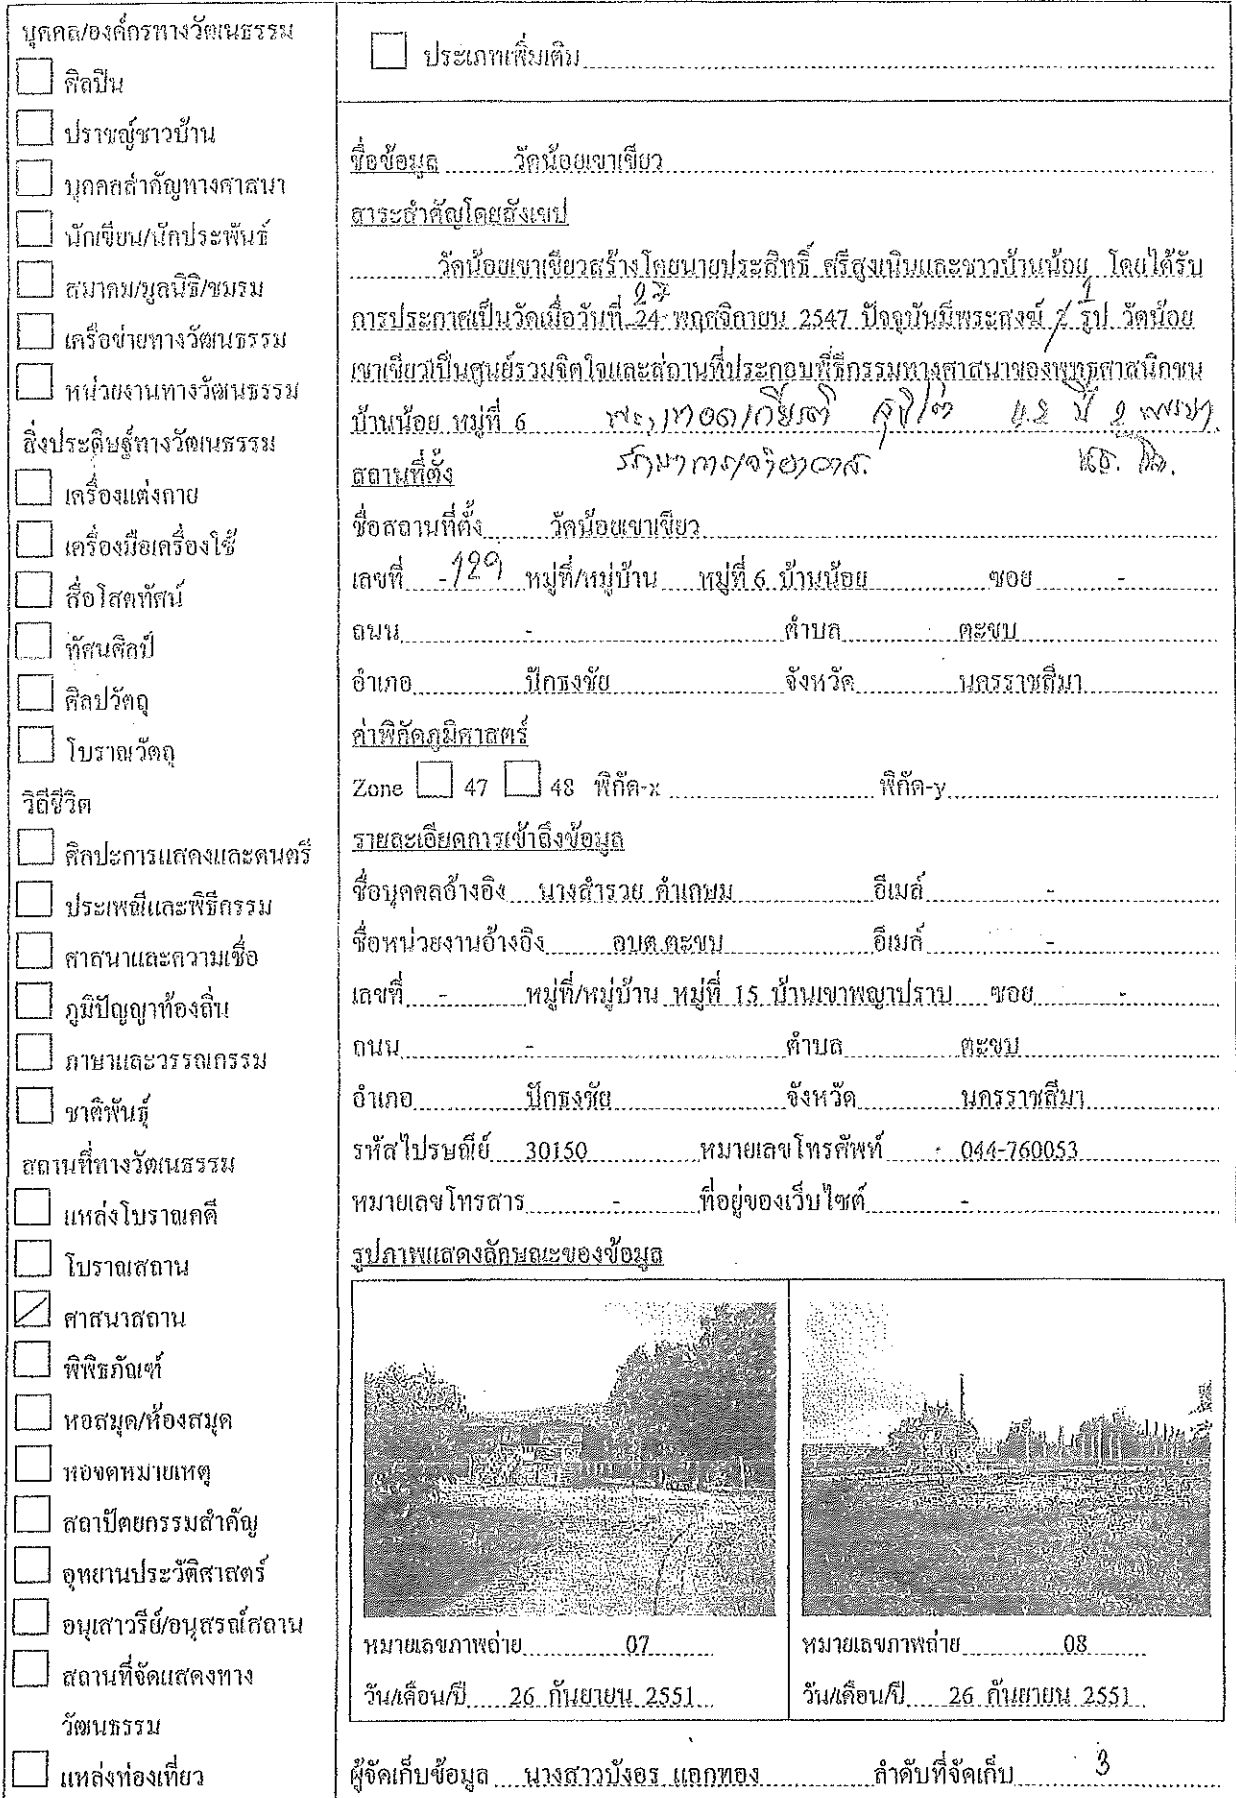 บุคคล/องค์กรทางวัฒนธรรม
ศิลปิน
ปราชญ์ชาวบ้าน
บุคคลสำคัญทางศาสนา
นักเขียน/นักประพันธ์
สมาคม/มูลนิธิ/ชมรม
เครือข่ายทางวัฒนธรรม
หน่วยงานทางวัฒนธรรม
สิ่งประดิษฐ์ทางวัฒนธรรม
เครื่องแต่งกาย
เครื่องมือเครื่องใช้
สื่อโสตทัศน์
ทัศนศิลป์
ศิลปวัตถุ
โบราณวัตถุ
วิถีชีวิต
ศิลปะการแสดงและดนตรี
ประเพณีและพิธีกรรม
ศาสนาและความเชื่อ
ภูมิปัญญาท้องถิ่น
ภาษาและวรรณกรรม
ชาติพันธุ์
สถานที่ทางวัฒนธรรม
แหล่งโบราณคดี
โบราณสถาน
ศาสนาสถาน
พิพิธภัณฑ์
หอสมุด/ห้องสมุด
หอจดหมายเหตุ
สถาปัตยกรรมสำคัญ
อุทยานประวัติศาสตร์
อนุเสาวรีย์/อนุสรณ์สถาน
สถานที่จัดแสดงทาง
วัฒนธรรม
แหล่งท่องเที่ยว
ประเภทเพิ่มเติม
ชื่อข้อมูล วัดน้อยเขาเขียว
สาระสำคัญโดยสังเขป
วัดน้อยเขาเขียวสร้างโดยนายประสิทธิ์ ศรีสูงเนินและชาวบ้านน้อย โดยได้รับ
27 1
การประกาศเป็นวัดเมื่อวันที่ 24 พฤศจิกายน 2547 ปัจจุบันมีพระสงฆ์ 2 รูป วัดน้อย
เขาเขียวเป็นศูนย์รวมจิตใจและสถานที่ประกอบพิธีกรรมทางศาสนาของพุทธศาสนิกชน
บ้านน้อย หมู่ที่ 6 พระเทอดเกียรติ
สถานที่ตั้ง
ชื่อสถานที่ตั้ง วัดน้อยเขาเขียว
เลขที่ -129 หมู่ที่/หมู่บ้าน หมู่ที่ 6 บ้านน้อย ซอย -
ถนน - ตำบล ตะขบ
อำเภอ ปักธงชัย จังหวัด นครราชสีมา
ค่าพิกัดภูมิศาสตร์
Zone 47 48 พิกัด-x พิกัด-y
รายละเอียดการเข้าถึงข้อมูล
ชื่อบุคคลอ้างอิง นางสำรวย คำเกษม อีเมล์ -
ชื่อหน่วยงานอ้างอิง อบต.ตะขบ อีเมล์ -
เลขที่ - หมู่ที่/หมู่บ้าน หมู่ที่ 15 บ้านเขาพญาปราบ ซอย -
ถนน - ตำบล ตะขบ
อำเภอ ปักธงชัย จังหวัด นครราชสีมา
รหัสไปรษณีย์ 30150 หมายเลขโทรศัพท์ 044-760053
หมายเลขโทรสาร - ที่อยู่ของเว็บไซต์ -
รูปภาพแสดงลักษณะของข้อมูล
หมายเลขภาพถ่าย 07
วัน/เดือน/ปี 26 กันยายน 2551
หมายเลขภาพถ่าย 08
วัน/เดือน/ปี 26 กันยายน 2551
ผู้จัดเก็บข้อมูล นางสาวบังอร แอกทอง ลำดับที่จัดเก็บ 3